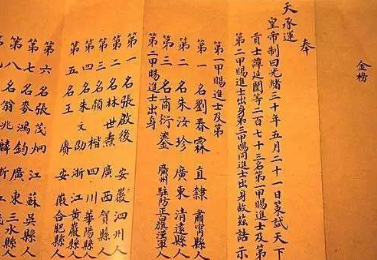 金榜
奉
天承運
皇帝制曰光緒三十年五月二十一日策試天下
貢士譚延闓等二百七十三名第一甲賜進士及第
第二甲賜進士出身第三甲賜同進士出身故茲誥示
第一甲賜進士及第
第一名劉春霖 直隸 肅甯縣人
第二名朱汝珍 廣東 清遠縣人
第三名商衍鎏 廣州駐防正旗漢軍人
第二甲賜進士出身
第一名張啟後 安徽泗州人
第二名林世燾 廣西賀縣人
第三名顏楷 四川華陽縣人
第四名朱文劭 浙江黃巖縣人
第五名王賡 安徽合肥縣人
第六名張茂炯 江蘇吳縣人
第七名麥鴻鈞 廣東三水縣人
第八名